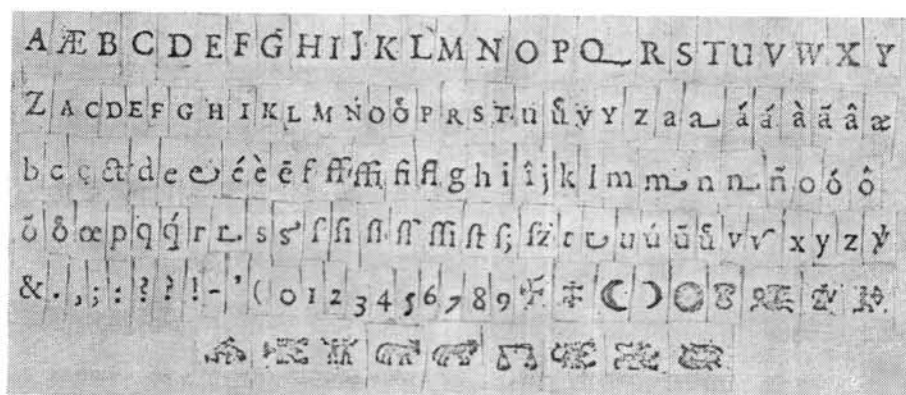 A Æ B C D E F G̃ H I J K L M N O P Q R S T U V W X Y
Z A C D E F G H I K L M Ń O O̊ P R S T U ů v̈ Y Z a a á á à ã â æ
b c ç ct d e e é è ẽ f ff ffi fi fl g h i î j k l m m n n ñ o ó ô
õ o̊ œ p q q́ r r s s ſ ſi ſl ſſ ſſi ſt ſ; ſz t t u ú ũ ů v v x y z
& . , ; : ? ? ! - ' ( 0 1 2 3 4 5 6 7 8 9 ☾ ☽